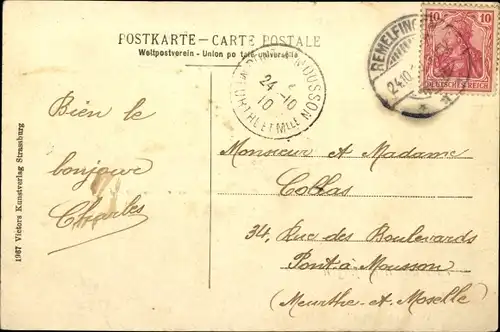 POSTKARTE - CARTE POSTALE
Weltpostverein - Union postale universelle
REMELFING
24.10.
10 10
DEUTSCHES REICH
A MOUSSON
24 - 10
10
MEURTHE ET MLLE
Bien le
bonjour
Charles
Monsieur et Madame
Collas
34, Rue des Boulevards
Pont à Mousson
(Meurthe-et-Moselle)
1967 Victors Kunstverlag Strassburg